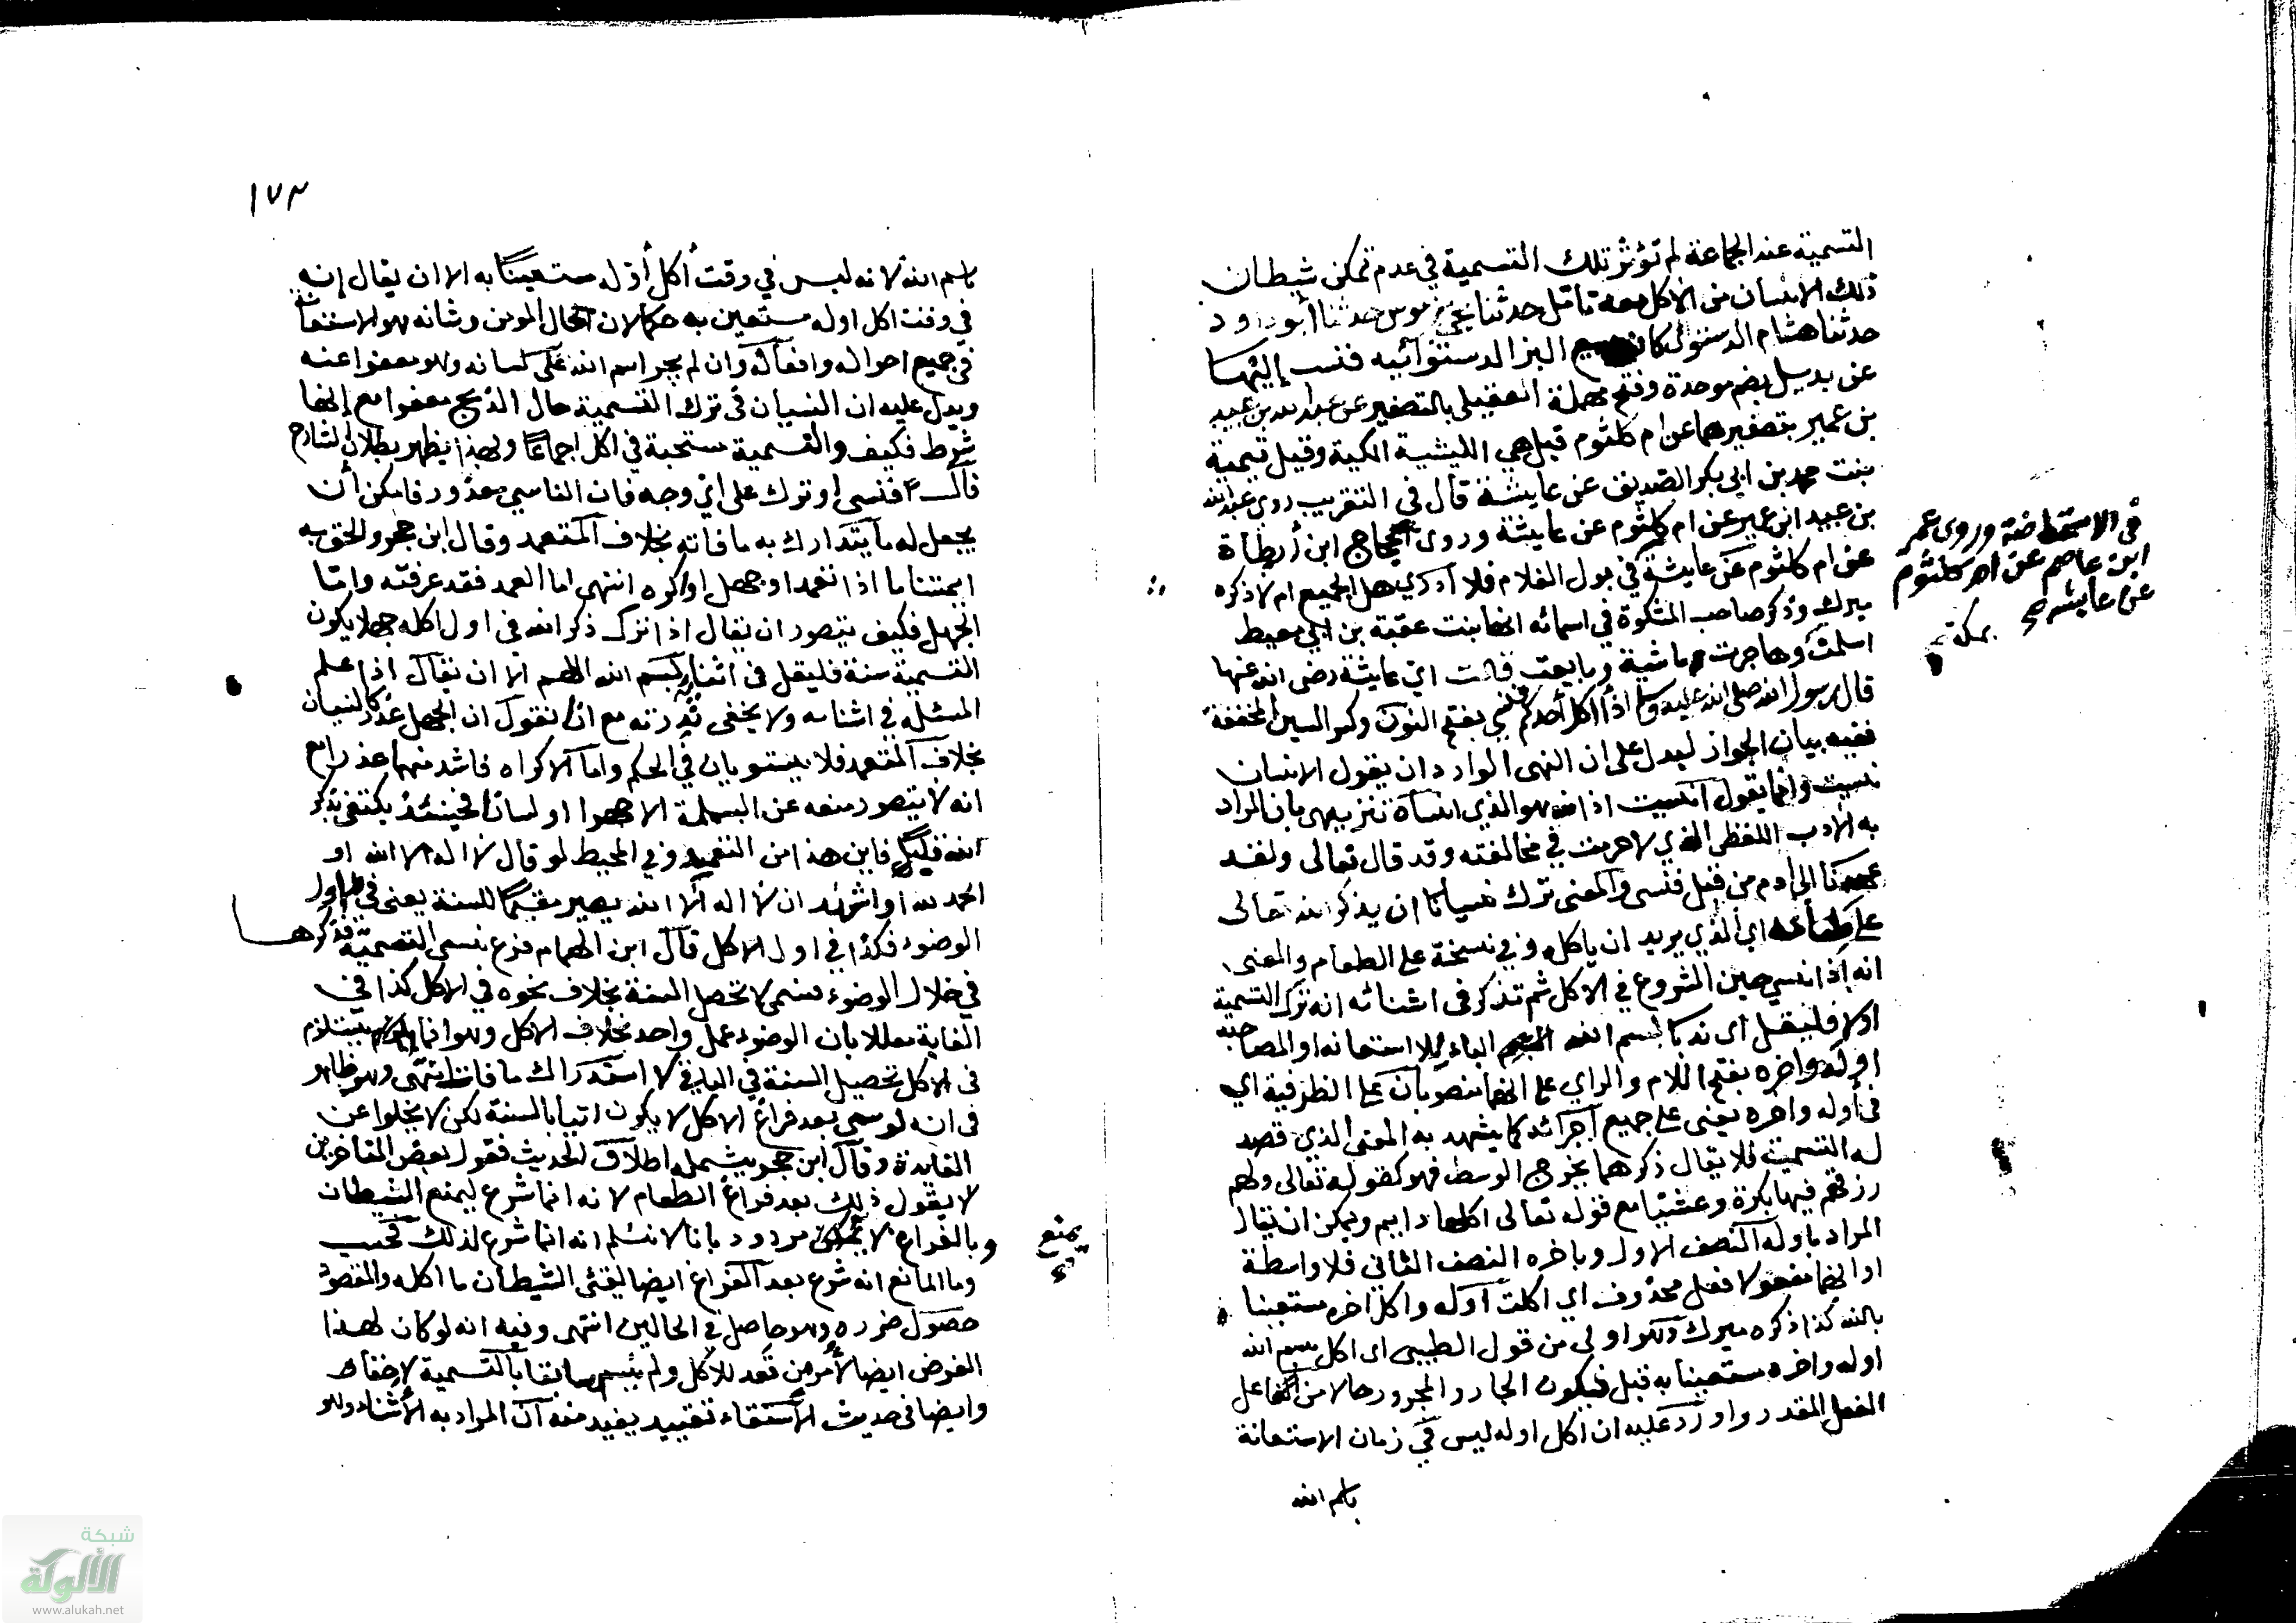 التسمية عند الجماعة لم تؤثر تلك التسمية في عدم تمكن شيطان
ذلك الانسان من الاكل معه تأمل حدثنا يحيى بن موسى حدثنا أبو داود
حدثنا هشام الدستوائي كان يبيع البز الدستوائيه فنسب إليها
عن بديل بضم موحدة وفتح مهملة العقيلي بالتصغير عن عبد الله بن عبيد
بن عمير بتصغيرهما عن ام كلثوم قيل هي الليثية المكية وقيل تيمية
بنت محمد بن ابي بكر الصديق عن عايشة قال في التقريب روى عبد الله
بن عبيد ابن عمير عن ام كلثوم عن عايشة وروى الحجاج ابن أرطأة
عن ام كلثوم عن عايشة في بول الغلام فلا أدري هل الجميع ام لا ذكره
ميرك وذكر صاحب المشكوة في اسمائه انها بنت عقبة بن ابي معيط
اسلمت وهاجرت ماشية وبايعت قالت اي عايشة رضى الله عنها
قال رسول الله صلى الله عليه وسلم اذا أكل أحدكم فنسي بفتح النون وكسر السين المخففة
ففيه بيان الجواز ليدل على ان النهى الوارد ان يقول الانسان
نسيت وانما يقول انسيت اذ الله هو الذي انساه تنزيهي بان المراد
به الأدب اللفظي الذي لا حرمت في مخالفته وقد قال تعالى ولقد
عهدنا الى آدم من قبل فنسى والمعنى ترك نسيانا ان يذكر الله تعالى
على طعامه اي الذي يريد ان يأكله وفي نسخة على الطعام والمعنى
انه اذا نسي حين الشروع في الاكل ثم تذكر في اثنائه انه ترك التسمية
اولا فليقل اى ندبا بسم الله الباء للاستعانه او المصاحبة
اوله واخره بفتح اللام والراي على انهما منصوبان على الظرفية اي
في أوله واخره يعنى على جميع أجزائه كما يشهد به المعنى الذي قصد
له التسمية فلا يقال ذكرهما يخرج الوسط فهو كقوله تعالى ولهم
رزقهم فيها بكرة وعشيا مع قوله تعالى اكلها دايم ويمكن ان يقال
المراد باوله النصف الاول وباخره النصف الثاني فلا واسطة
او انهما مفعولا فعل محذوف اي اكلت أوله واكل اخره مستعينا
بالله كذا ذكره ميرك وهو اولى من قول الطيبي اى اكل بسم الله
اوله واخره مستعينا به قبل فيكون الجار والمجرور حالا من الفاعل
الفعل المقدر واورد عليه ان اكل اوله ليس في زمان الاستعانة
باسم الله
في الاستحاضة وروى عمر
ابن عاصم عن ام كلثوم
عن عايشه صح
بمكة
١٧٣
باسم الله لانه ليس في وقت أكل أوله مستعينا به الا ان يقال إنه
في وقت اكل اوله مستعين به حكما لان حال المومن وشانه هو الاستعانة
في جميع احواله وافعاله وان لم يجر اسم الله على لسانه وهو معفوا عنه
ويدل عليه ان النسيان في ترك التسمية حال الذبح معفوا مع إنها
شرط فكيف والتسمية مستحبة في اكل اجماعا وبهذا يظهر بطلان الشارح
فنسي او ترك على اي وجه فان الناسي معذور فامكن أن
يجعل له ما يتدارك به ما فاته بخلاف المتعمد وقال ابن حجر والحق به
ايمتنا ما اذا تعمد او جهل او اكره انتهى اما العمد فقد عرفته واما
الجهل فكيف يتصور ان يقال اذا ترك ذكر الله في اول اكله جهلا يكون
التسمية سنة فليقل في اثنائه بسم الله اللهم الا ان يقال اذا علم
المسئلة في اثنائه ولا يخفى ندرته مع انا نقول ان الجهل عذر كالنسيان
بخلاف المتعمد فلا يستويان في الحكم واما الاكراه فاشد منهما عذرا مع
انه لا يتصور منعه عن البسملة الا جهرا او لسانا فحينئذ يكتفى بذكر
الله فأين هذا من التعميد وفي المحيط لو قال لا اله الا الله او
الحمد لله او اشهد ان لا اله الا الله يصير مقيما للسنة يعنى في اول
الوضوء فكذا في اول الاكل قال ابن الهمام فرع نسى التسمية فذكرها
في خلال الوضوء فسمى لا تحصل السنة بخلاف نحوه في الاكل كذا في
الغاية معللا بان الوضوء عمل واحد بخلاف الاكل وهو انما يستلزم
في الاكل تحصيل السنة في الباقي لا استدراك ما فات انتهى وهو ظاهر
في انه لو سمى بعد فراغ الاكل لا يكون اتيا بالسنة لكن لا يخلوا عن
الفايدة وقال ابن حجر يشمله اطلاق الحديث فقول بعض المتاخرين
لا يقول ذلك بعد فراغ الطعام لانه انما شرع ليمنع الشيطان
وبالفراغ لا مردود بانا لا نسلم انه انما شرع لذلك فحسب
وما المانع انه شرع بعد الفراغ ايضا ليقئى الشيطان ما اكله والمقصود
حصول ضرره وهو حاصل في الحالين انتهى وفيه انه لو كان لهذا
الغرض ايضا لأمر من قعد للأكل ولم يسم سابقا بالتسمية لاحقا
وايضا في حديث الاستقاء تقييد يفيد منه ان المراد به الأثناء وهو
يمنع
شبكة
الألوكة
www.alukah.net